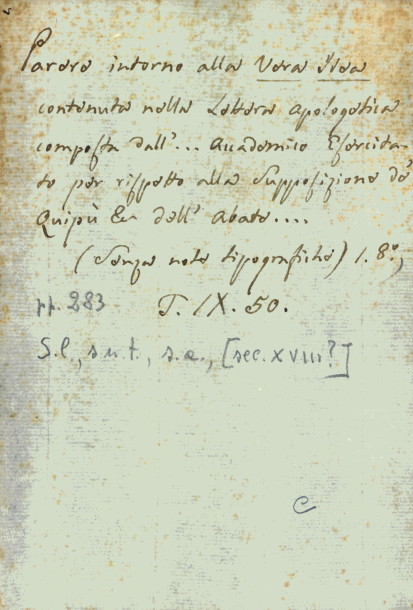 Parere intorno alla Vera Idea
contenuta nella Lettera Apologetica
composta dall'... Accademico Esercita-
to per rispetto alla Supposizione de'
Quipù &c dell' Abate....
(Senza note tipografiche) 1. 8º,
pp. 283 T. IX. 50.
S.l., s.n.t., s.a., [sec. XVIII?]
C